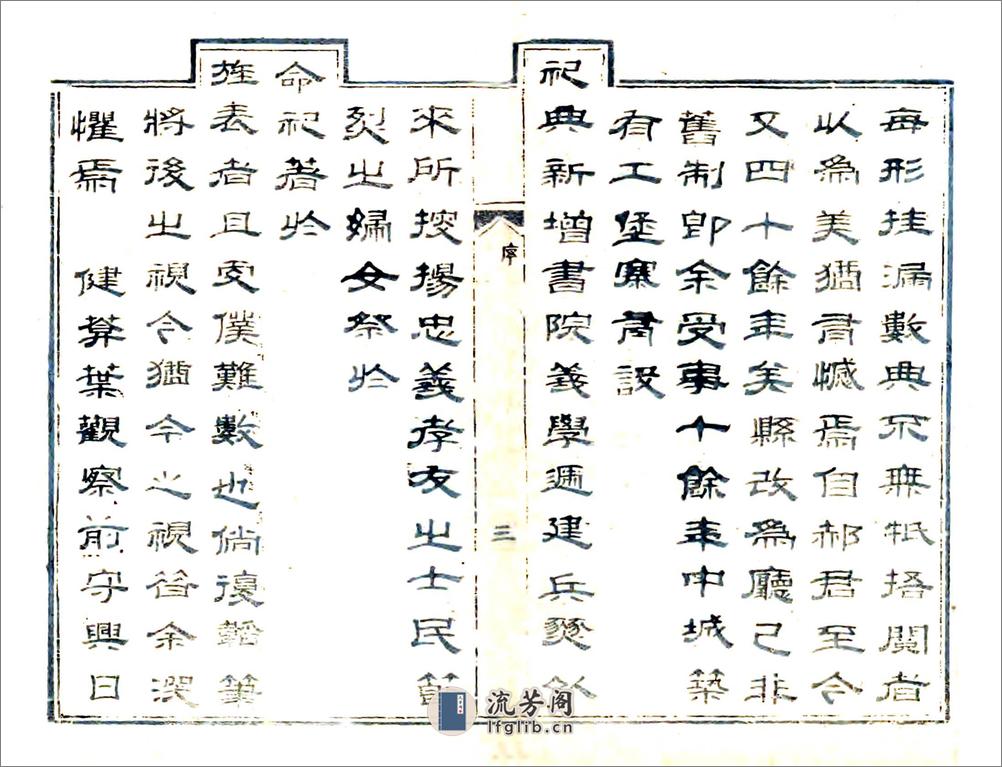 每形挂漏數典不無牴捂閱者
以為美猶有憾焉自郝君至今
又四十餘年矣縣改為廳已非
舊制即余受事十餘年中城築
有工堡寨有設
祀典新增書院義學遞建兵燹以
序
三
來所揚忠義孝友之士民節
烈之婦女祭於
命祀著於
旌表者且更僕難數也倘復韜筆
將後之視今猶今之視昔余深
懼焉 健菴葉觀察前守興日
流芳阁
lfglib.cn